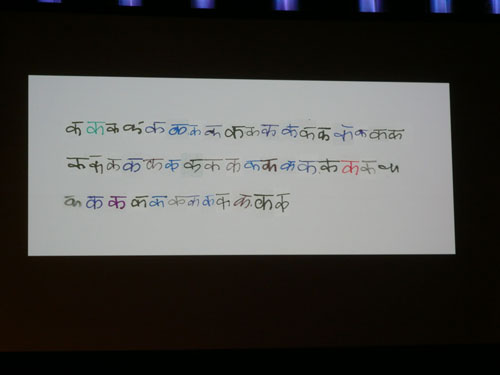 क क क क क क क क क क क क क क क क क क
क क क क क क क क क क क क क क क क क
क क क क क क क क क क क क